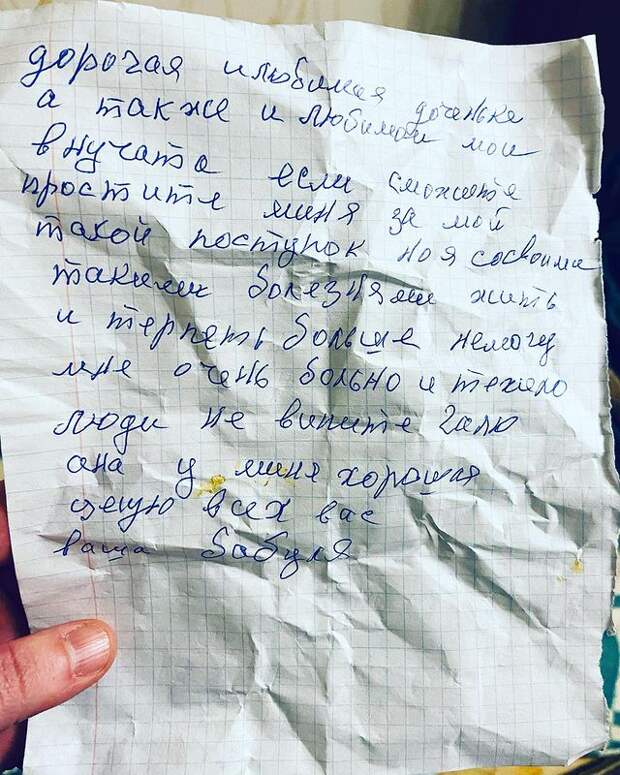 дорогая и любимая доченька
а также и любимаи мои
внучата если сможите
простите миня за мой
такой поступок но я сосвоими
такими болезнями жить
и терпеть больше немогу
мне очень больно и тежело
люди не вините Галю
она у миня хорошая
целую всех вас
ваша бабуля